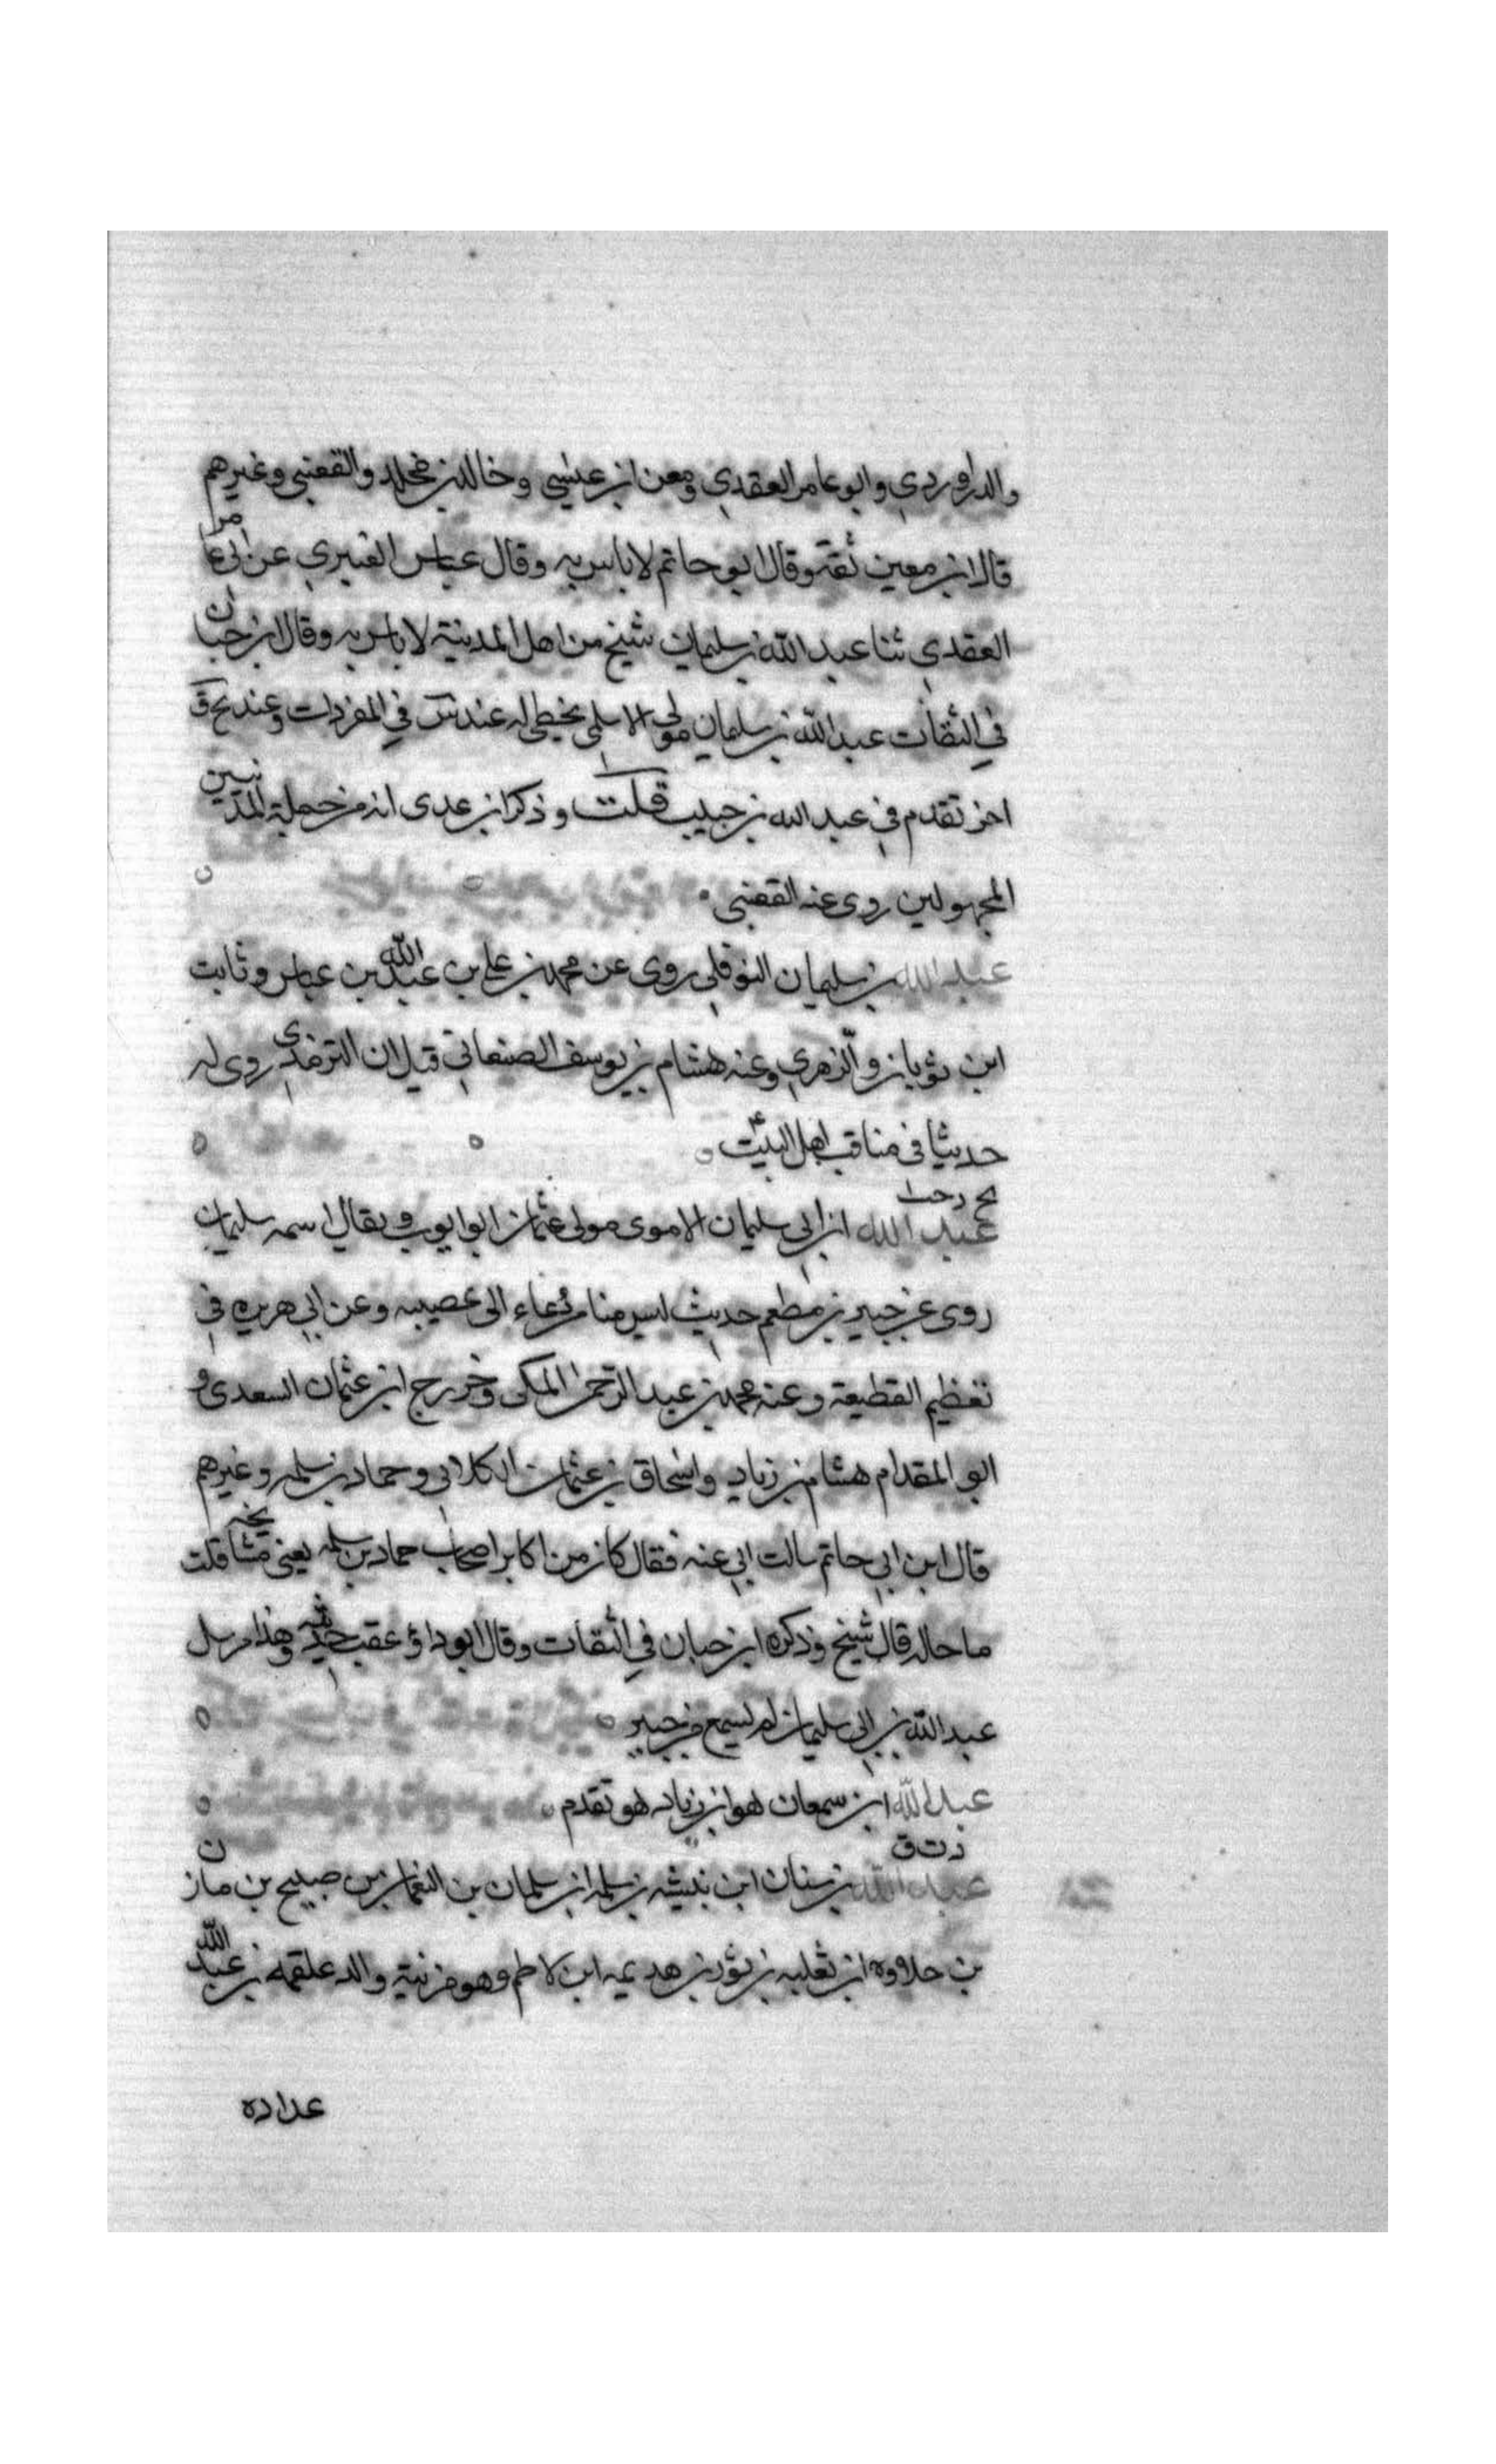 والدراوردي وابو عامر العقدي ومعن ابن عيسى وخالد بن مخلد والقعنبي وغيرهم
قال ابن معين ثقة وقال ابو حاتم لا باس به وقال عباس العنبري عن ابي عامر
العقدي ثنا عبد الله بن سليمان شيخ من اهل المدينة لا باس به وقال ابن حبان
في الثقات عبد الله بن سليمان مولى الاسلمي يخطى له عندس في المفردات وعند بخ ق
اخر تقدم في عبد الله بن حبيب قلت وذكر ابن عدى انه من جملة المدنيين
المجهولين روى عنه القعنبى
عبد الله بن سليمان النوفلي روى عن محمد بن علي بن عبد الله بن عباس وثابت
ابن ثوبان والزهري وعنه هشام بن يوسف الصنعاني قيل ان الترمذي روى له
حديثا في مناقب اهل البيت
بخ د
عبد الله ابن ابي سليمان الاموى مولى عثمان ابو ايوب ويقال اسمه سليمان
روى عن جبير بن مطعم حديث ليس منا من دعاء الى عصيبه وعن ابي هريره في
تعظيم القطيعة وعنه محمد بن عبد الرحمن المكى وخزرج ابن عثمان السعدى و
ابو المقدام هشام بن زياد واسحاق بن عثمان الكلابى وحماد بن سلمه وغيرهم
قال ابن ابي حاتم سالت ابي عنه فقال كان من اكابر اصحاب حماد بن سلمه يعنى مشايخه قلت
ما حاله قال شيخ وذكره ابن حبان في الثقات وقال ابو داؤ عقب حديثه وهذا مرسل
عبد الله بن ابي سليمان لم يسمع من جبير
عبد الله ابن سمعان هو ابن زياد هو تقدم
د ت ق
عبد الله بن سنان ابن نبيشه بن سلمه ابن سلمان بن النعمان بن صبيح بن مازن
بن حلاوه ابن ثعلبه بن ثور بن هديمه ابن لاطم وهو مزنية والد علقمه بن عبد الله
عداده